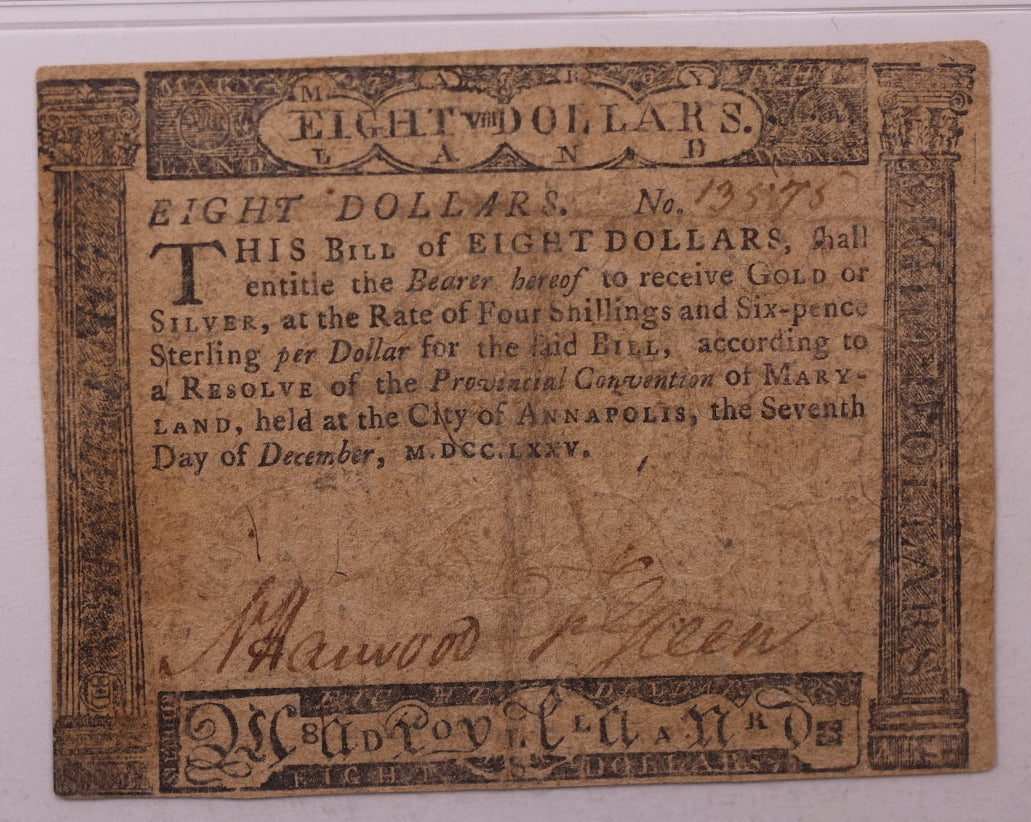 MARY
LAND
M A R Y
EIGHT VIII DOLLARS.
L A N D
EIGHT DOLLARS. No. 13575
THIS BILL of EIGHT DOLLARS, ſhall
entitle the Bearer hereof to receive GOLD or
SILVER, at the Rate of Four Shillings and Six-pence
Sterling per Dollar for the ſaid BILL, according to
a RESOLVE of the Provincial Convention of MARY-
LAND, held at the City of ANNAPOLIS, the Seventh
Day of December, M.DCC.LXXV.
N Harwood
EIGHT DOLLARS
EIGHT DOLLARS
EIGHT DOLLARS